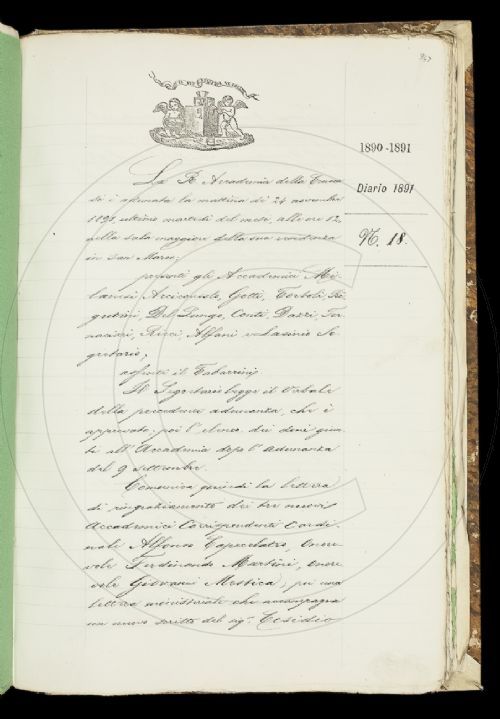 1890-1891
Diario 1891
N. 18.
La R. Accademia della Crusca
si è adunata la mattina di 24 novembre
1891, ultimo martedì del mese, alle ore 12,
nella sala maggiore della sua residenza
in San Marco;
presenti gli Accademici Mi-
lanesi, Arciconsolo, Gotti, Tortoli, Ri-
gutini, Del Lungo, Conti, Dazzi, For-
naciari, Ricci, Alfani e Segre-
tario;
assente il Tabarrini
Il Segretario legge il Verbale
della precedente adunanza, che è
approvato, poi l'elenco dei doni giun-
ti all'Accademia dopo l'adunanza
del 9 Settembre.
Comunica quindi la lettera
di ringraziamento dei tre nuovi
Accademici Corrispondenti Cardi-
nale Alfonso Capecelatro, Onore-
vole Ferdinando Martini, Onore-
vole Giovanni Mestica; più una
lettera ministeriale che accompagna
un nuovo scritto del sig. Cesidio